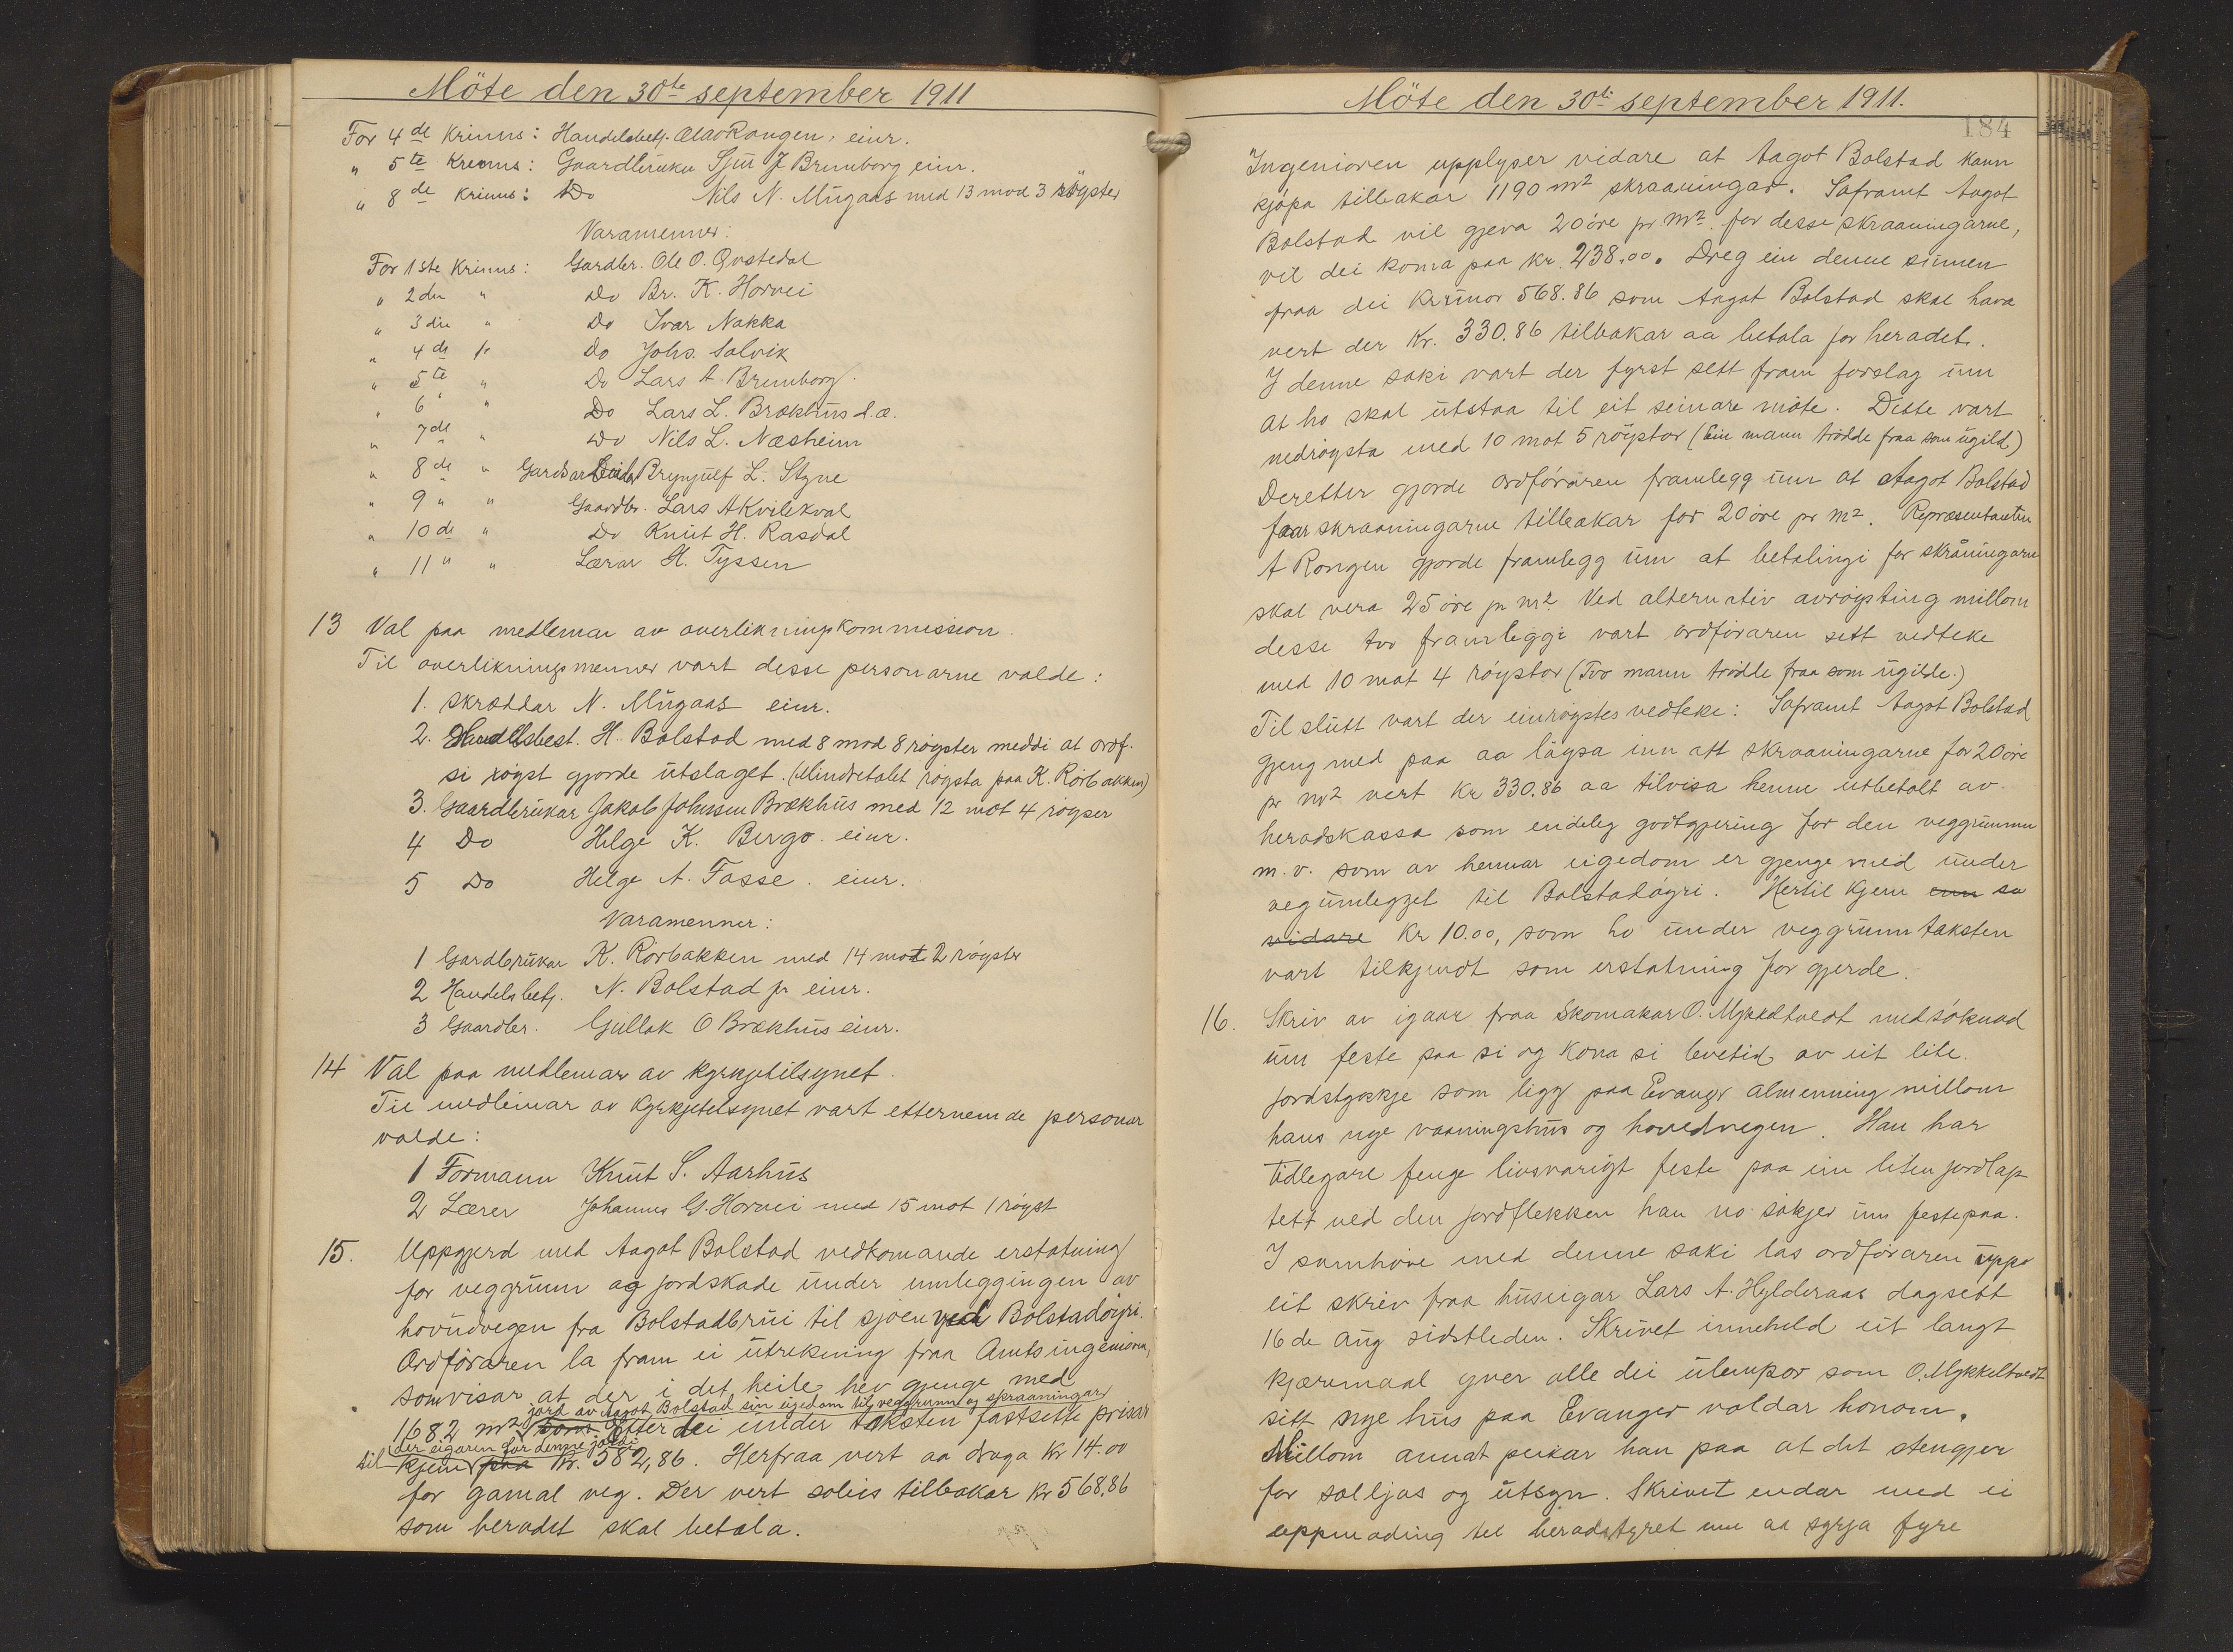 Möte den 30te september 1911
For 4de Krinns: Handelsbetj. Olav Rongen, einr.
" 5te Krinns: Gaardbrukar Sjur J Bremborg einr.
" 8de Krinns: Do Nils N. Mugaas med 13 mod 3 röyster
Varamenner:
For 1ste Krinns: Gardbr. Ole O. Qvstedal
" 2dre " Do Br. K. Horvei
" 3die " Do Ivar Nakka
" 4de " Do Johs. Solvik
" 5te " Do Lars A. Bremborg.
" 6 " Do Lars L. Brækhus d.æ.
" 7de " Do Nils L. Næsheim
" 8de " Gardbrukar Brynjulf L. Styve
" 9 " " Gaardbr. Lars A Kvilekval
" 10de " Do Knut H. Rasdal
" 11 " " Lærar H. Tyssen
13 Val paa medlemar av overlikningskommission.
Til overlikningsmenner vart desse personarne valde:
1. Skræddar N. Mugaas einr.
2. Handelsbest. H. Bolstad med 8 mod 8 röyster meddi at ordf.
si röyst gjorde utslaget. (Mindretalet röysta paa K. Rörbakken)
3. Gaardbrukar Jakob Johnsen Brækhus med 12 mot 4 röyser
4 Do Helge K. Bergo. einr.
5 Do Helge A. Fasse. einr.
Varamenner:
1 Gardbrukar K. Rörbakken med 14 mot 2 röyster
2 Handelsbetj. N. Bolstad jr einr.
3 Gaardbr. Gullak O Brækhus einr.
14 Val paa medlemar av kyrkjetilsynet.
Til medlemar av Kyrkjetilsynet vart etternemde personar
valde:
1 Formann Knut S. Aarhus
2 Lærer Johannes G. Horvei med 15 mot 1 röyst
15. Uppgjerd med Aagot Bolstad vedkomande erstatning
for veggrunn og jordskade under umleggingen av
hovudvegen fra Bolstadbrui til sjoen ved Bolstadöyri.
Ordföraren la fram ei utrekning fraa Amtsingeniören,
som visar at der i det heile hev gjenge med
jord av Aagot Bolstad sin eigedom til veggrunn og skraaningar
1682 m² som Etter dei under taksten fastsette prisar
der eigaren for denne jordi
til kjem paa Kr. 582,86. Herfraa vert aa draga Kr 14.00
for gamal veg. Der vert soleis tilbakar Kr 568.86
som heradet skal betala.
Möte den 30te september 1911.
184
Ingeniören upplyser vidare at Aagot Bolstad kann
kjöpa tilbakar 1190 m² skraaningar. Saframt Aagot
Bolstad vil gjeva 20 öre pr m². for desse skraaningarne,
vil dei koma paa Kr. 238.00. Dreg ein denne summen
fraa dei Krunor 568.86 som Aagot Bolstad skal hava
vert der Kr. 330.86 tilbakar aa betala for heradet.
I denne saki vart der fyrst sett fram forslag um
at ho skal utstaa til eit seinare möte. Dette vart
nedröysta med 10 mot 5 röystor (Ein mann trödde fraa som ugild)
Deretter gjorde ordföraren framlegg um at Aagot Bolstad
faar skraaningarne tilbakar for 20 öre pr m². Repræsentanten
A Rongen gjorde framlegg um at betalingi for skråningarne
skal vera 25 öre pr m². Ved alternativ avröysting millom
desse tvo framleggi vart ordföraren sett vedteke
med 10 mot 4 röystor (Tvo mann trödde fraa som ugilde.)
Til slutt vart der einröystes vedteke: Saframt Aagot Bolstad
gjeng med paa aa löysa inn att skraaningarne for 20 öre
pr m² vert Kr 330.86 aa tilvisa henne utbetalt av
heradskassa som endeleg godtgjering for den veggrunnen
m.v. som av hennar eigedom er gjenge med under
vegumlegget til Bolstadöyri. Hertil kjem enn so
vidare Kr 10.00, som ho under veggrunntaksten
vart tilkjendt som erstatning for gjerde.
16. Skriv av igaar fraa Skomakar O. Mykkeltvedt med söknad
um feste paa si og Kona si levetid av eit lite
jordstykkje som ligg paa Evanger almenning millom
hans nye vaaningshus og hovedvegen. Han har
tidlegare fenge livsvarigt feste paa ein liten jordlap
tett ved den jordflekken han no sökjer um feste paa.
I samhöve med denne saki las ordföraren uppo
eit skriv fraa huseigar Lars A. Hylderaas dagsett
16de aug sidstleden. Skrivet inneheld eit langt
kjæremaal yver alle dei ulempor som O. Mykkeltvedt
sitt nye hus paa Evanger voldar honom.
Millom annat peikar han paa at det stengjer
for solljos og utsyn. Skrivet endar med ei
uppmoding til heradstyret um aa syrja fyre